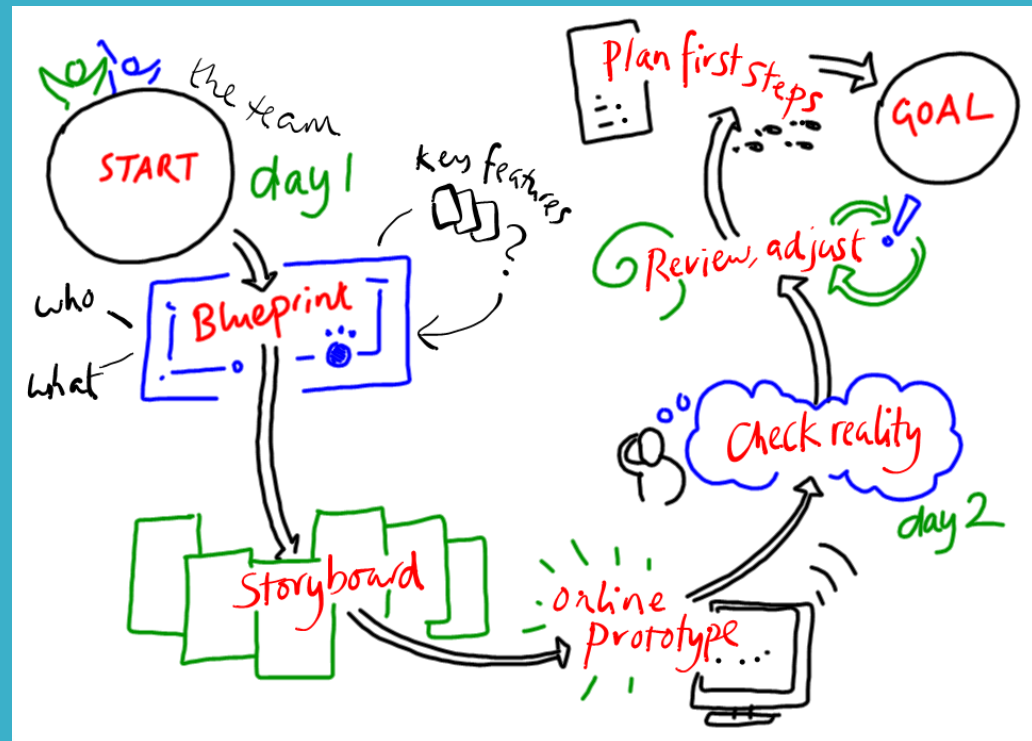 the team
START
day 1
key features
?
who
what
Blueprint
Storyboard
Online
Prototype
day 2
Check reality
Review, adjust
!
Plan first steps
GOAL